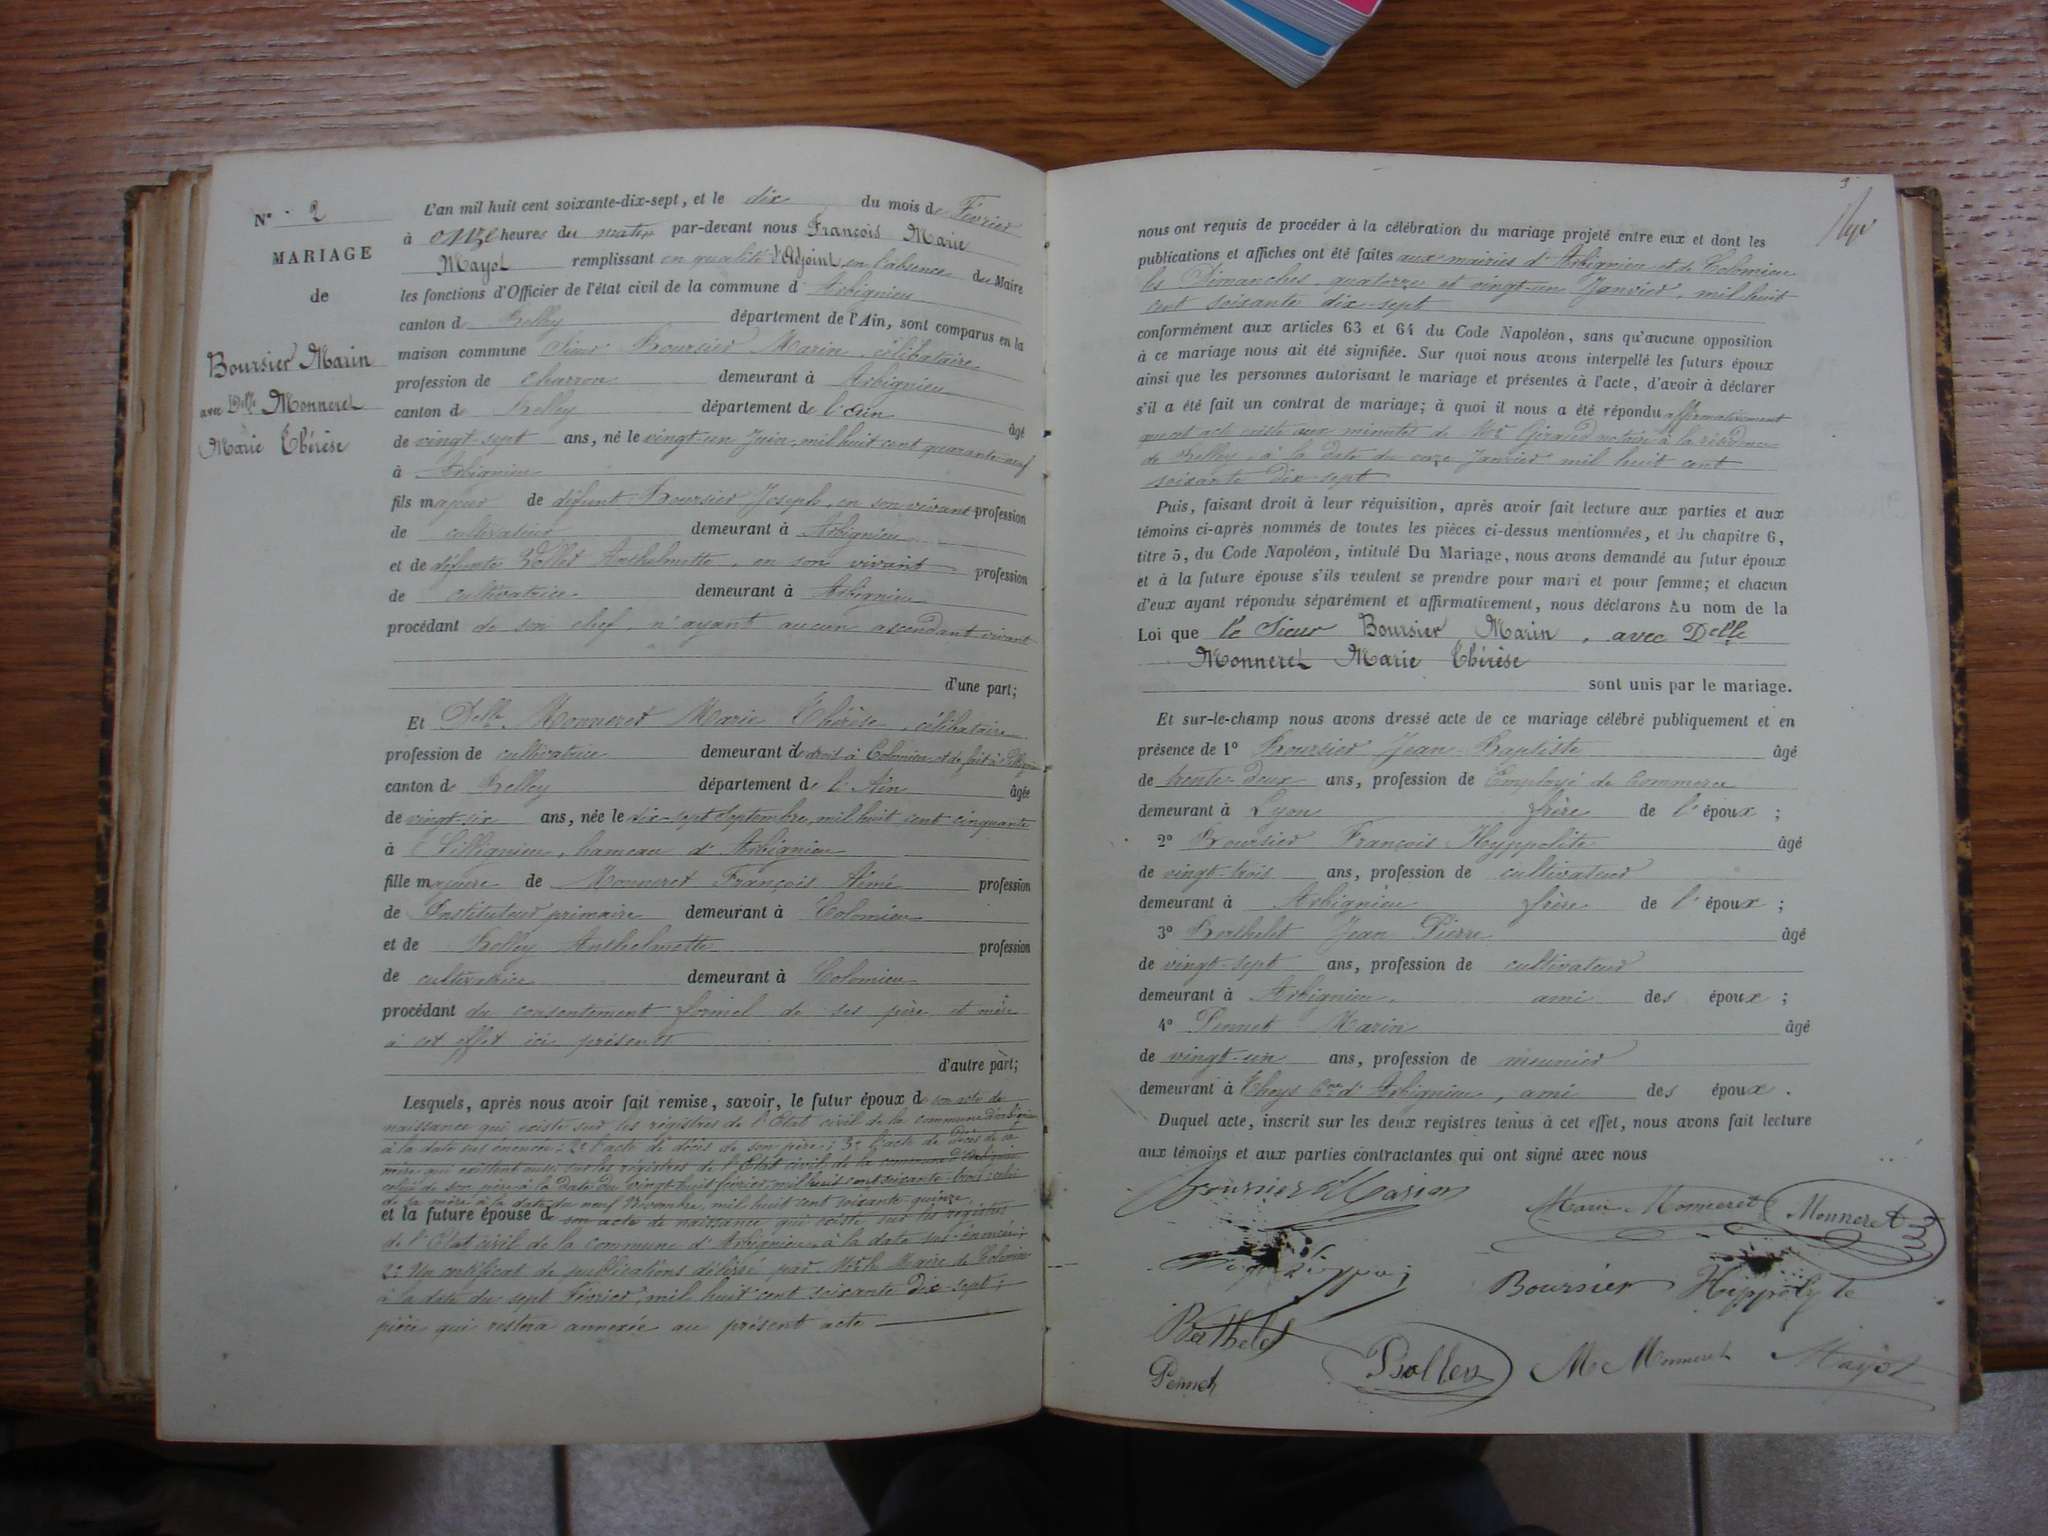 N° 2
MARIAGE
de
Boursier Marin
avec Delle Monneret
Marie Thérèse
L'an mil huit cent soixante-dix-sept, et le dix du mois de Février
à onze heures du matin par-devant nous François Marie
Mayot remplissant en qualité d'Adjoint, en l'absence du Maire
les fonctions d'Officier de l'état civil de la commune d Arbignieu
canton d Belley département de l'Ain, sont comparus en la
maison commune Sieur Boursier Marin, célibataire
profession de charron demeurant à Arbignieu
canton d Belley département de l'Ain âgé
de vingt-sept ans, né le vingt-un Juin, mil huit cent quarante-neuf
à Arbignieu
fils majeur de défunt Boursier Joseph, en son vivant profession
de cultivateur demeurant à Arbignieu
et de défunte Anthelmette, en son vivant profession
de cultivatrice demeurant à Arbignieu
procédant de son chef, n'ayant aucun ascendant vivant
d'une part;
Et Delle Monneret Marie Thérèse, célibataire
profession de cultivatrice demeurant de droit à Colomieu et de fait à Sillignieu
canton d Belley département de l'Ain âgée
de vingt-six ans, née le dix-sept Septembre, mil huit cent cinquante
à Sillignieu, hameau d'Arbignieu
fille majeure de Monneret François Aimé profession
de Instituteur primaire demeurant à Colomieu
et de Belley Anthelmette profession
de cultivatrice demeurant à Colomieu
procédant du consentement formel de ses père et mère
à cet effet ici présents
d'autre part;
Lesquels, après nous avoir fait remise, savoir, le futur époux d son acte de
naissance qui existe sur les registres de l'Etat civil de la commune d'Arbignieu
à la date sus énoncée; 2° l'acte de décès de son père; 3° l'acte de décès de sa
mère qui existent aussi sur les registres de l'Etat civil de la commune d'Arbignieu
celui de son père à la date du vingt-huit février, mil huit cent soixante-trois; celui
de sa mère à la date du neuf Novembre, mil huit cent soixante-quinze
et la future épouse d son acte de naissance qui existe sur les registres
de l'Etat civil de la commune d'Arbignieu, à la date sus-énoncée;
2° Un certificat de publications délivré par Mr le Maire de Colomieu
à la date du sept Février, mil huit cent soixante dix-sept;
pièce qui restera annexée au présent acte
nous ont requis de procéder à la célébration du mariage projeté entre eux et dont les
publications et affiches ont été faites aux mairies d'Arbignieu et de Colomieu
les Dimanches, quatorze et vingt-un Janvier, mil huit
cent soixante dix-sept
conformément aux articles 63 et 64 du Code Napoléon, sans qu'aucune opposition
à ce mariage nous ait été signifiée. Sur quoi nous avons interpellé les futurs époux
ainsi que les personnes autorisant le mariage et présentes à l'acte, d'avoir à déclarer
s'il a été fait un contrat de mariage; à quoi il nous a été répondu affirmativement
que cet acte existe aux minutes de Me Giraud notaire à la résidence
de Belley, à la date du onze Janvier mil huit cent
soixante dix-sept
Puis, faisant droit à leur réquisition, après avoir fait lecture aux parties et aux
témoins ci-après nommés de toutes les pièces ci-dessus mentionnées, et du chapitre 6,
titre 5, du Code Napoléon, intitulé Du Mariage, nous avons demandé au futur époux
et à la future épouse s'ils veulent se prendre pour mari et pour femme; et chacun
d'eux ayant répondu séparément et affirmativement, nous déclarons Au nom de la
Loi que le Sieur Boursier Marin, avec Delle
Monneret Marie Thérèse
sont unis par le mariage.
Et sur-le-champ nous avons dressé acte de ce mariage célébré publiquement et en
présence de 1° Boursier Jean-Baptiste âgé
de trente-deux ans, profession de Employé de Commerce
demeurant à Lyon frère de l'époux;
2° Boursier François Hyppolite âgé
de vingt-trois ans, profession de cultivateur
demeurant à Arbignieu frère de l'époux;
3° Berthelet Jean Pierre âgé
de vingt-sept ans, profession de cultivateur
demeurant à Arbignieu ami des époux;
4° Pennet Marin âgé
de vingt-un ans, profession de meunier
demeurant à Thoys Cne d'Arbignieu, ami des époux.
Duquel acte, inscrit sur les deux registres tenus à cet effet, nous avons fait lecture
aux témoins et aux parties contractantes qui ont signé avec nous
Boursier Marin
Marie Monneret Monneret
Boursier Hippolyte
Berthelet
Pennet
M Monneret Mayot